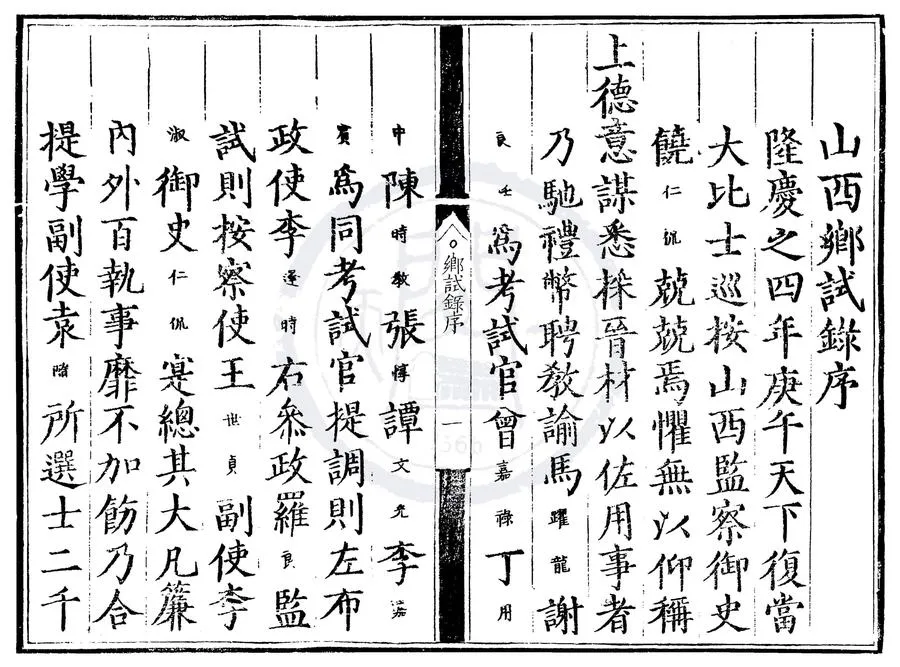 山西鄉試錄序
隆慶之四年庚午天下復當
大比士巡按山西監察御史
饒仁侃兢兢焉懼無以仰稱
上德意謀悉採晉材以佐用事者
乃馳禮幣聘教諭馬躍龍謝
良壬爲考試官曾嘉祿丁用
鄉試錄序
一
中陳時教張惇譚文光李
賓爲同考試官提調則左布
政使李逢時右叅政羅良監
試則按察使王世貞副使李
淑御史仁侃寔總其大凡簾
內外百執事靡不加飭乃合
提學副使袁隨所選士二千